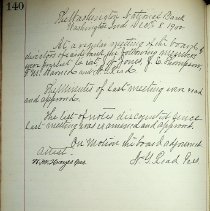 140
The Washington National Bank
Washington Ind Dec 5th 1900
At a regular meeting of the board of
directors of said bank the following directors
were present to wit: Jones J. C. Thompson,
and
The Minutes of last meeting were read
and approved.
The list of notes discounted since
last meeting was examined and approved.
On Motion the board adjourned
attest
N. G. Read Pres.